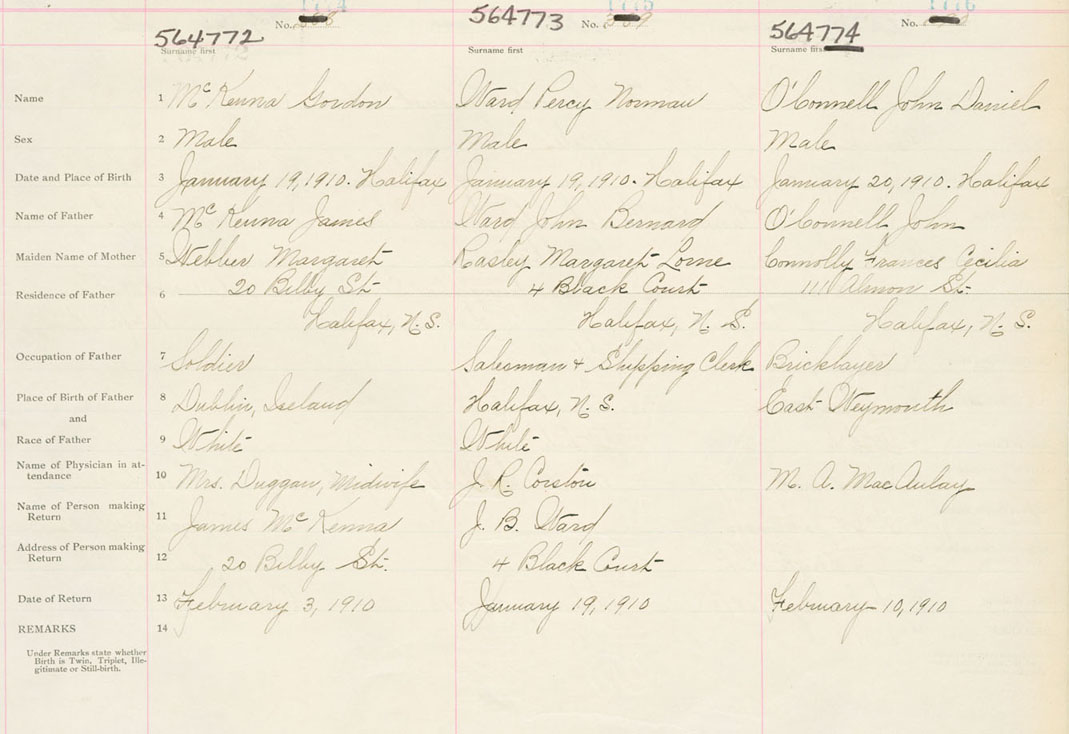 1774 1775 1776
No. No. 389 No.
564772 564773 564774
Surname first Surname first
Name 1 McKenna Gordon Ward Percy Norman O'Connell John Daniel
Sex 2 Male Male Male
Date and Place of Birth 3 January 19, 1910. Halifax January 19, 1910. Halifax January 20, 1910. Halifax
Name of Father 4 McKenna James Ward John Bernard O'Connell John
Maiden Name of Mother 5 Webber Margaret Rasley Margaret Lorne Connolly Frances Cecilia
20 Bilby St. 4 Black Court 111 Almon St.
Residence of Father 6
Halifax, N. S. Halifax, N. S. Halifax, N. S.
Occupation of Father 7 Soldier Salesman & Shipping Clerk Bricklayer
Place of Birth of Father 8 Dublin, Ireland Halifax, N. S. East Weymouth
and
Race of Father 9 White White
Name of Physician in at-
tendance 10 Mrs. Duggan, Midwife J. R. Corston M. A. MacAulay
Name of Person making
Return 11 James McKenna J. B. Ward
Address of Person making
Return 12 20 Bilby St. 4 Black Court
Date of Return 13 February 3, 1910 January 19, 1910 February 10, 1910
REMARKS 14
Under Remarks state whether
Birth is Twin, Triplet, Ille-
gitimate or Still-birth.